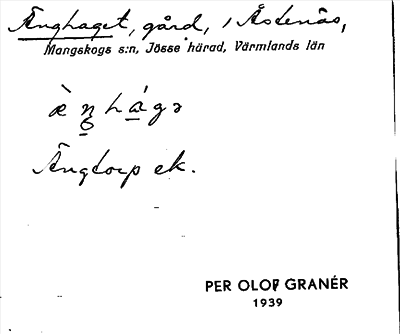 Änghaget, gård, i Åstenäs,
Mangskogs s:n, Jösse härad, Värmlands län
æ̀ŋhágə
Ängtorp ek.
PER OLOF GRANÉR
1939